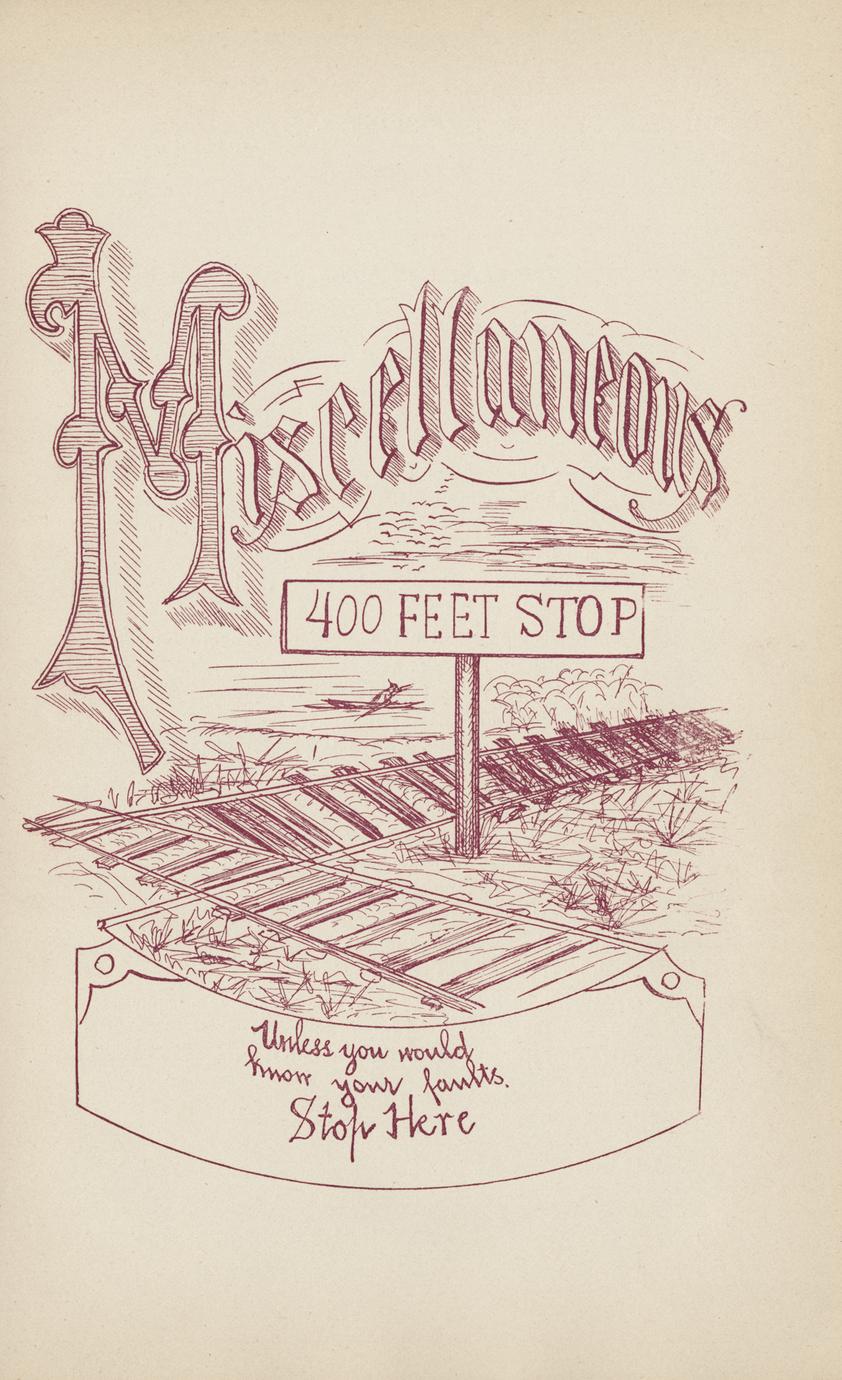 Miscellaneous
400 FEET STOP
Unless you would
know your faults.
Stop Here